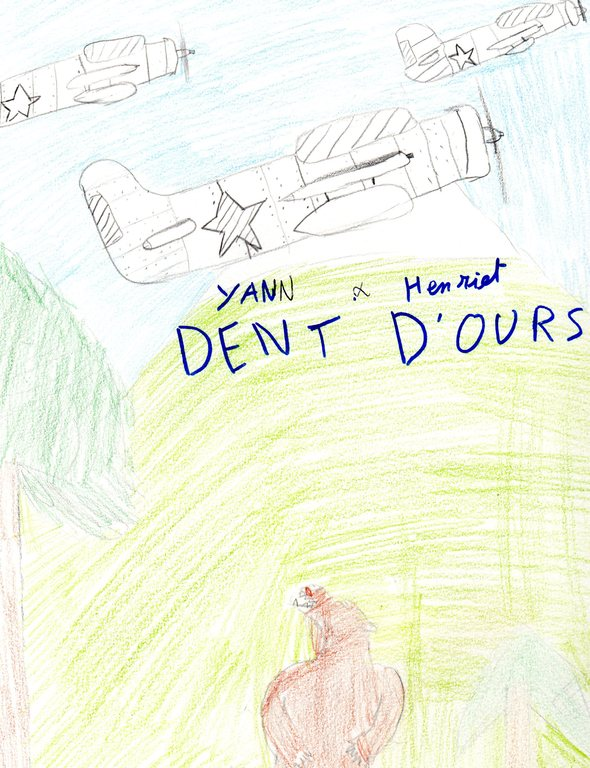 YANN & Henriet
DENT D'OURS